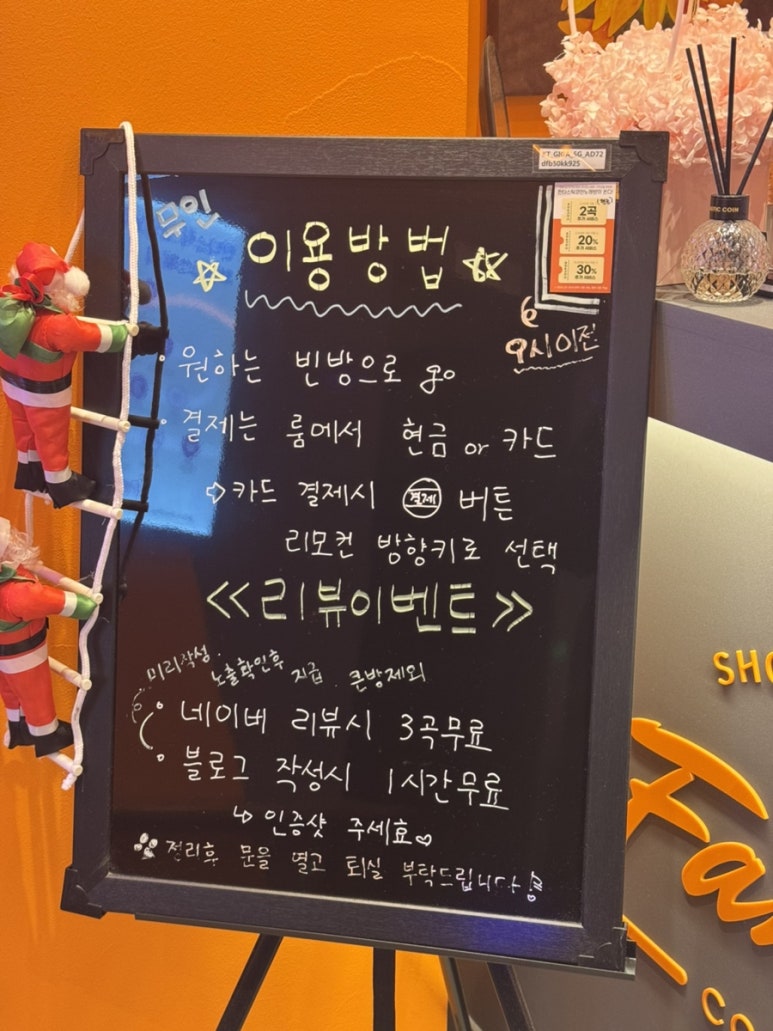 무인
이용방법
9시이전
2곡
20%
30%
원하는 빈방으로 go
결제는 룸에서 현금 or 카드
⇨카드 결제시 결제 버튼
리모컨 방향키로 선택
<<리뷰이벤트>>
미리작성. 노출확인후 지급 큰방제외
네이버 리뷰시 3곡무료
블로그 작성시 1시간무료
↳ 인증샷 주세효♡
정리후 문을 열고 퇴실 부탁드립니다
KT_GiGA_5G_AD72
dfb50kk925
TIC COIN
SHO
Fa
CO